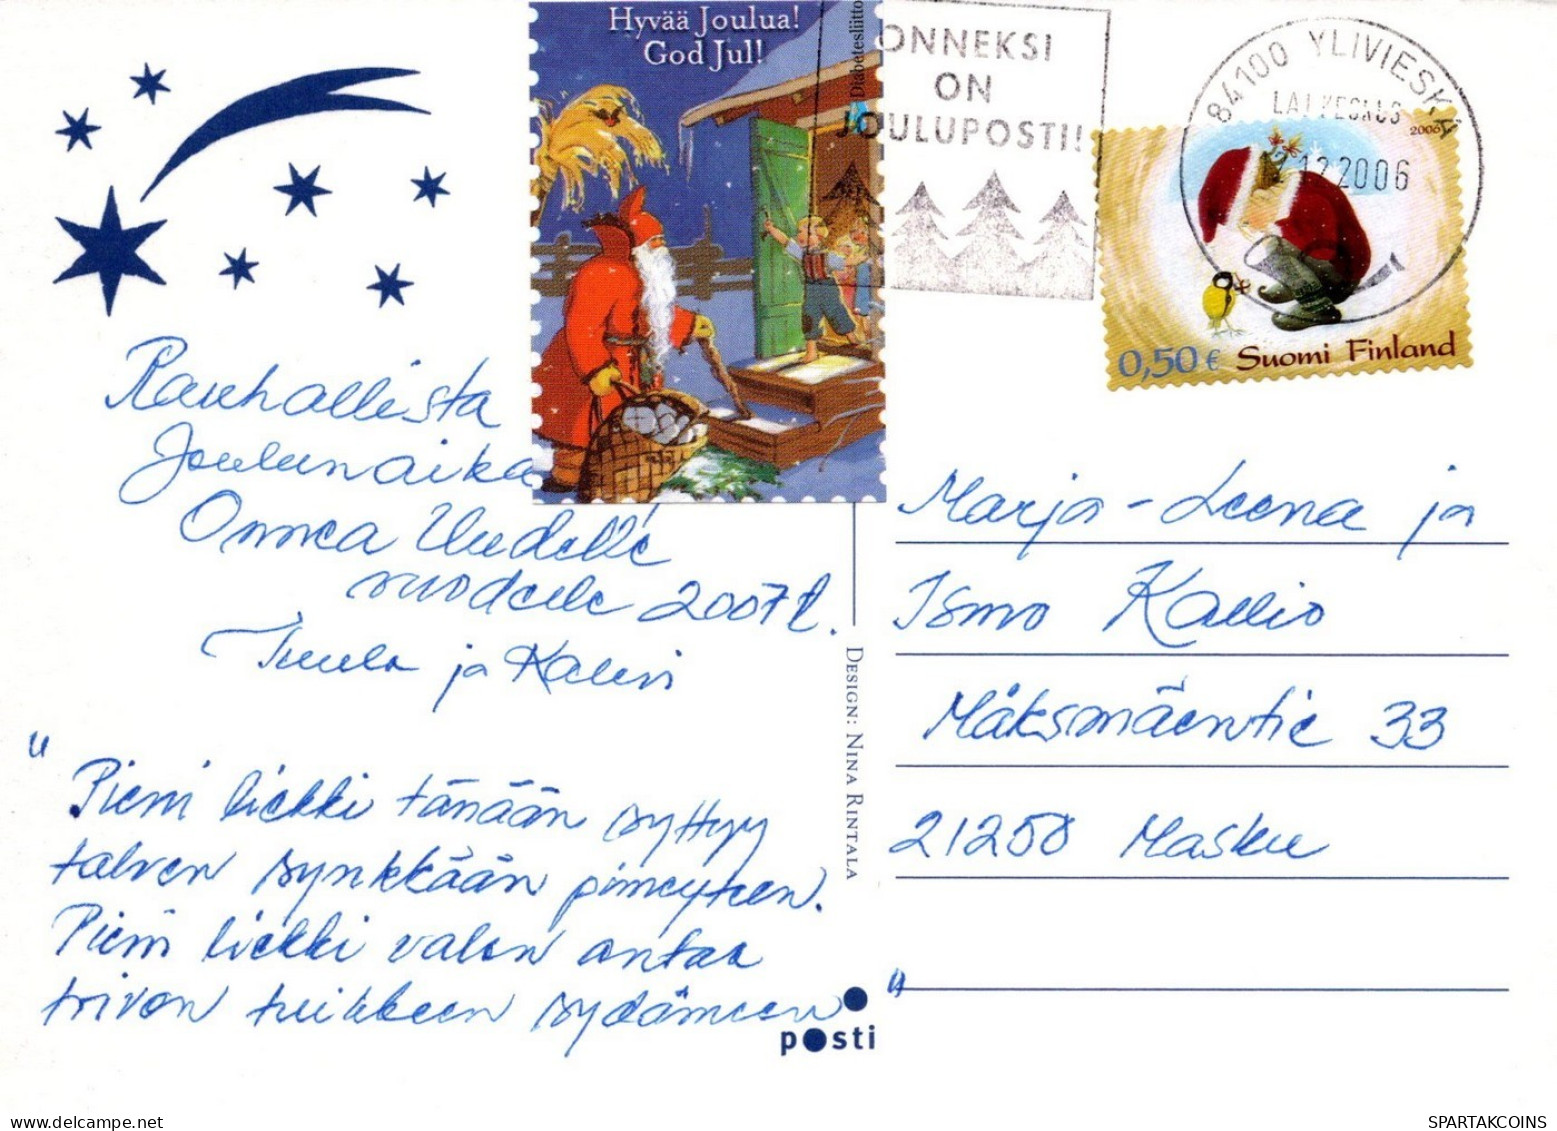 Hyvää Joulua!
God Jul!
Diabetesliitto
ONNEKSI
ON
JOULUPOSTI!
84100 YLIVIESKA
2.12.2006
2006
0,50 € Suomi Finland
Rauhallista
Joulunaikaa
Onnea Uudelle
vuodelle 2007!
Tuula ja Kalevi
"Pieni liekki tänään syttyy
talven synkkään pimeyteen.
Pieni liekki valon antaa
toivon tuikkeen sydämeen"
posti
DESIGN: NINA RINTALA
Marja-Leena ja
Ismo Kallio
Mäksmäentie 33
21250 Masku
SPARTAKCOINS.COM